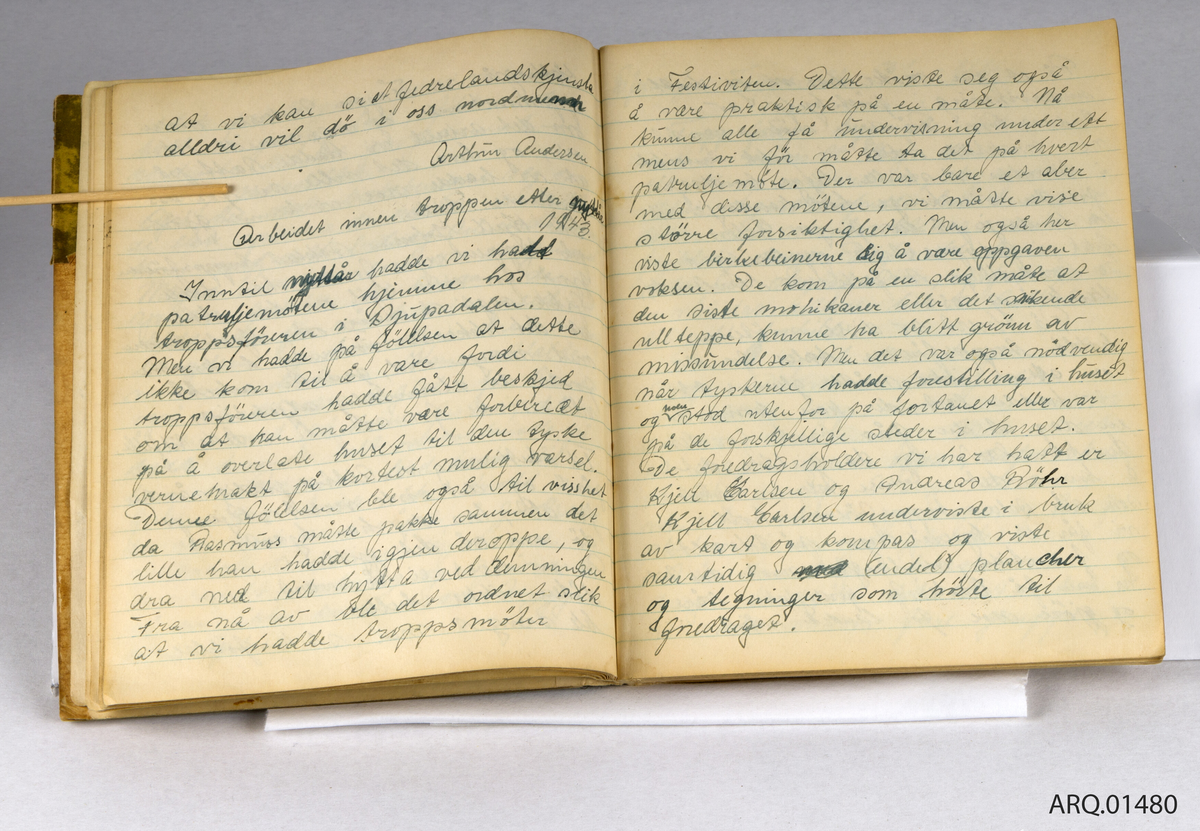 at vi kan si at fedrelandskjensla
alldri vil dö i oss nordmenn
Arthur Andersen
Arbeidet innen troppen etter
1943.
Inntil nyttår hadde vi hadd
patruljemötene hjemme hos
troppsföreren i Djupadalen.
Men vi hadde på fölelsen at dette
ikke kom til å vare fordi
troppsföreren hadde fått beskjed
om at han måtte være forbiredt
på å overlate huset til den tyske
vernemakt på kortest mulig varsel.
Denne fölelsen ble også til visshet
da Rasmuss måtte pakke sammen det
lille han hadde igjen deroppe, og
dra ned til hytta ved demningen
Fra nå av ble det ordnet slik
at vi hadde troppsmöter
i Festiviten. Dette viste seg også
å være praktisk på en måte. Nå
kunne alle få undervisning under ett
mens vi för måtte ta det på hvert
patruljemöte. Der var bare et aber
med disse mötene, vi måtte vise
större forsiktighet. Men også her
viste birkebeinerne sig å være oppgaven
voksen. De kom på en slik måte at
den siste mohikaner eller det
ullteppe, kunne ha blitt grönn av
missundelse. Men det var også nödvendig
når tyskerne hadde forestilling i huset
og noen stod utenfor på fortauet eller var
på de forskjellige steder i huset.
De foredragsholdere vi har hatt er
Kjell Carlsen og Andreas Röhr
Kjell Carlsen underviste i bruk
av kart og kompas og viste
samtidig endel plancher
og tegninger som hörte til
foredraget.
ARQ.01480